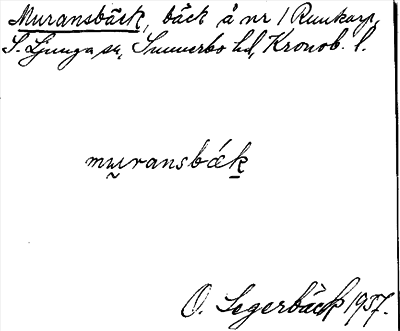 Muransbäck, bäck å nr 1 Runkarp,
S. Ljunga sn, Sunnerbo hd, Kronob. l.
muransbák
O. Segerbäck 1937.